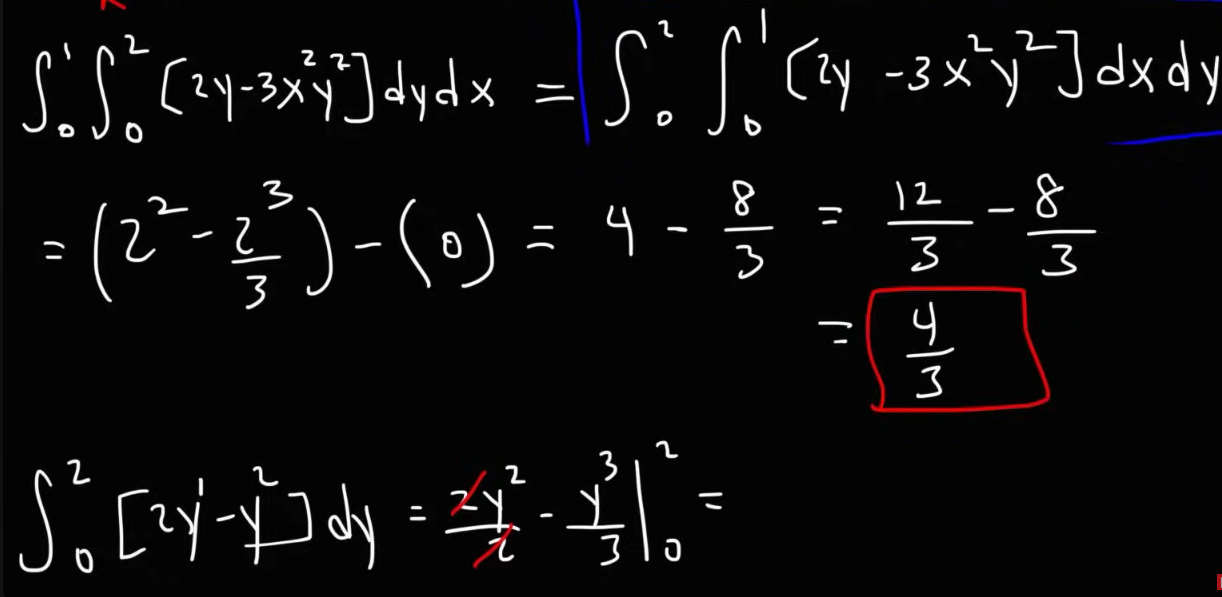 ∫₀¹ ∫₀² [2y-3x²y²] dy dx = ∫₀² ∫₀¹ [2y - 3x²y²] dx dy
= (2² - 2³/3) - (0) = 4 - 8/3 = 12/3 - 8/3
= 4/3
∫₀² [2y¹ - y²] dy = 2y²/2 - y³/3 |₀² =